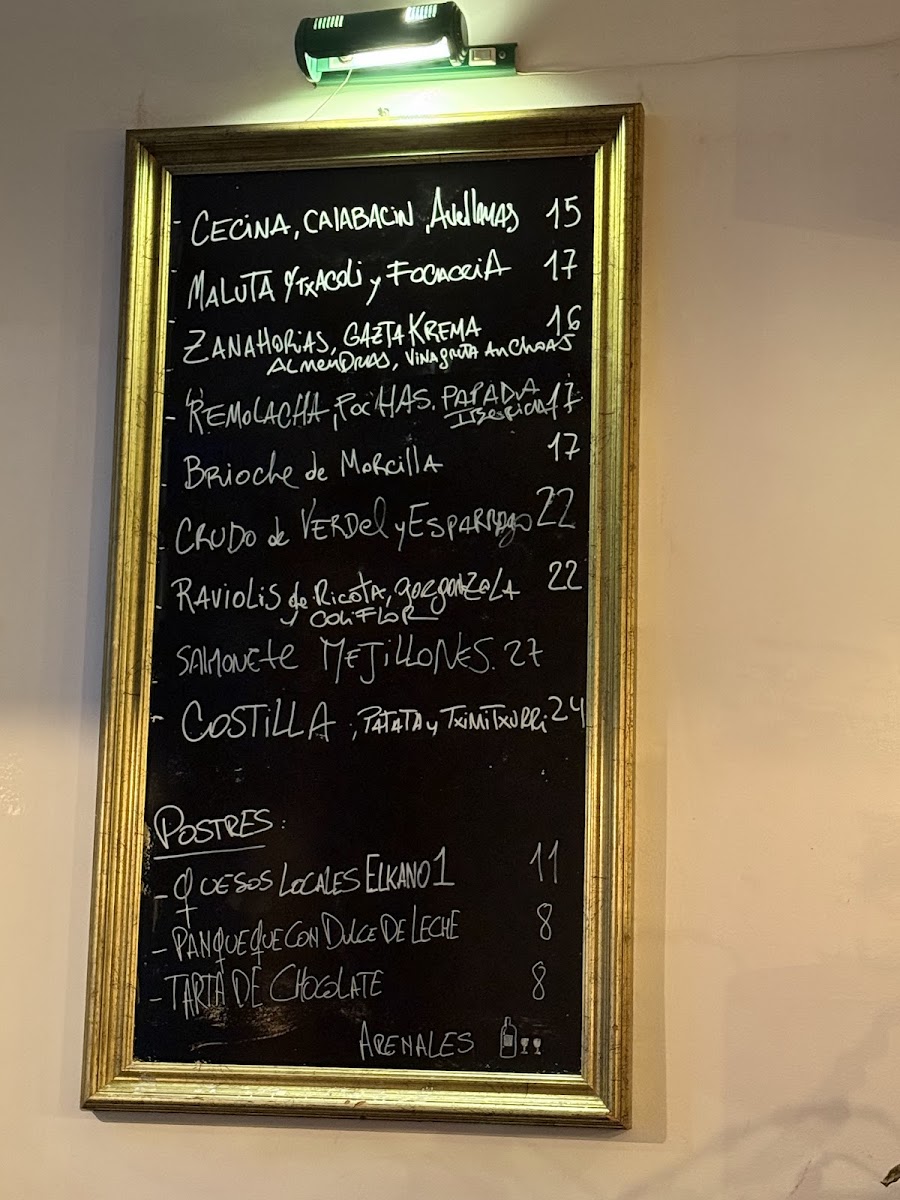 - CECINA, CALABACIN, AVELLANAS 15
- MALUTA, TXACOLI y FOCACCIA 17
- ZANAHORIAS, GAZTA KREMA 16
ALMENDRAS, VINAGRETA ANCHOAS
- REMOLACHA, POCHAS. PAPADA 17
IBERICA
- BRIOCHE de MORCILLA 17
- CRUDO de VERDEL y ESPARRAGO 22
- RAVIOLIS de RICOTA, GORGONZOLA 22
y COLIFLOR
- SALMONETE MEJILLONES. 27
- COSTILLA, PATATA y TXIMITXURRI 24
POSTRES:
- QUESOS LOCALES ELKANO 1 11
- PANQUEQUE CON DULCE DE LECHE 8
- TARTA DE CHOCOLATE 8
ARENALES